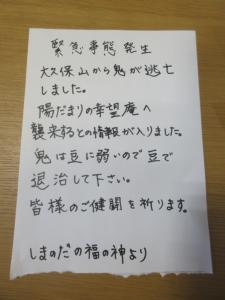 緊急事態発生
大久保山から鬼が逃亡
しました。
陽だまりの幸望庵へ
襲来するとの情報が入りました。
鬼は豆に弱いので豆で
退治して下さい。
皆様のご健闘を祈ります。
しまのだの福の神より